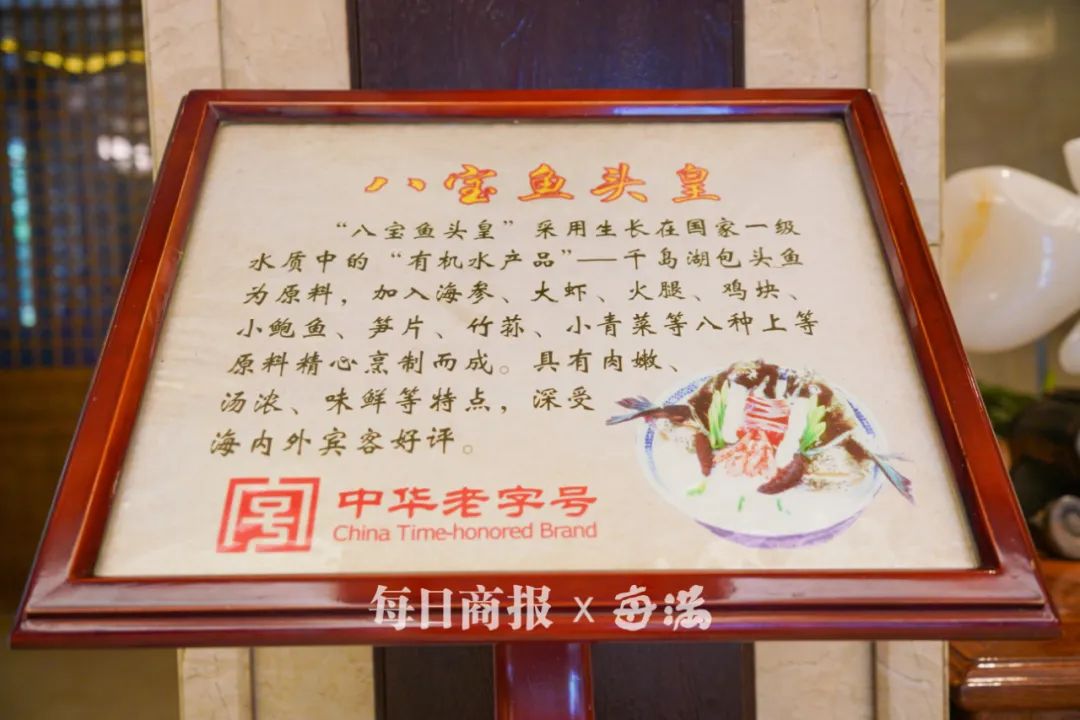 八宝鱼头皇
“八宝鱼头皇”采用生长在国家一级
水质中的“有机水产品”——千岛湖包头鱼
为原料，加入海参、大虾、火腿、鸡块、
小鲍鱼、笋片、竹荪、小青菜等八种上等
原料精心烹制而成。具有肉嫩、
汤浓、味鲜等特点，深受
海内外宾客好评。
中华老字号
China Time-honored Brand
每日商报 X 每满